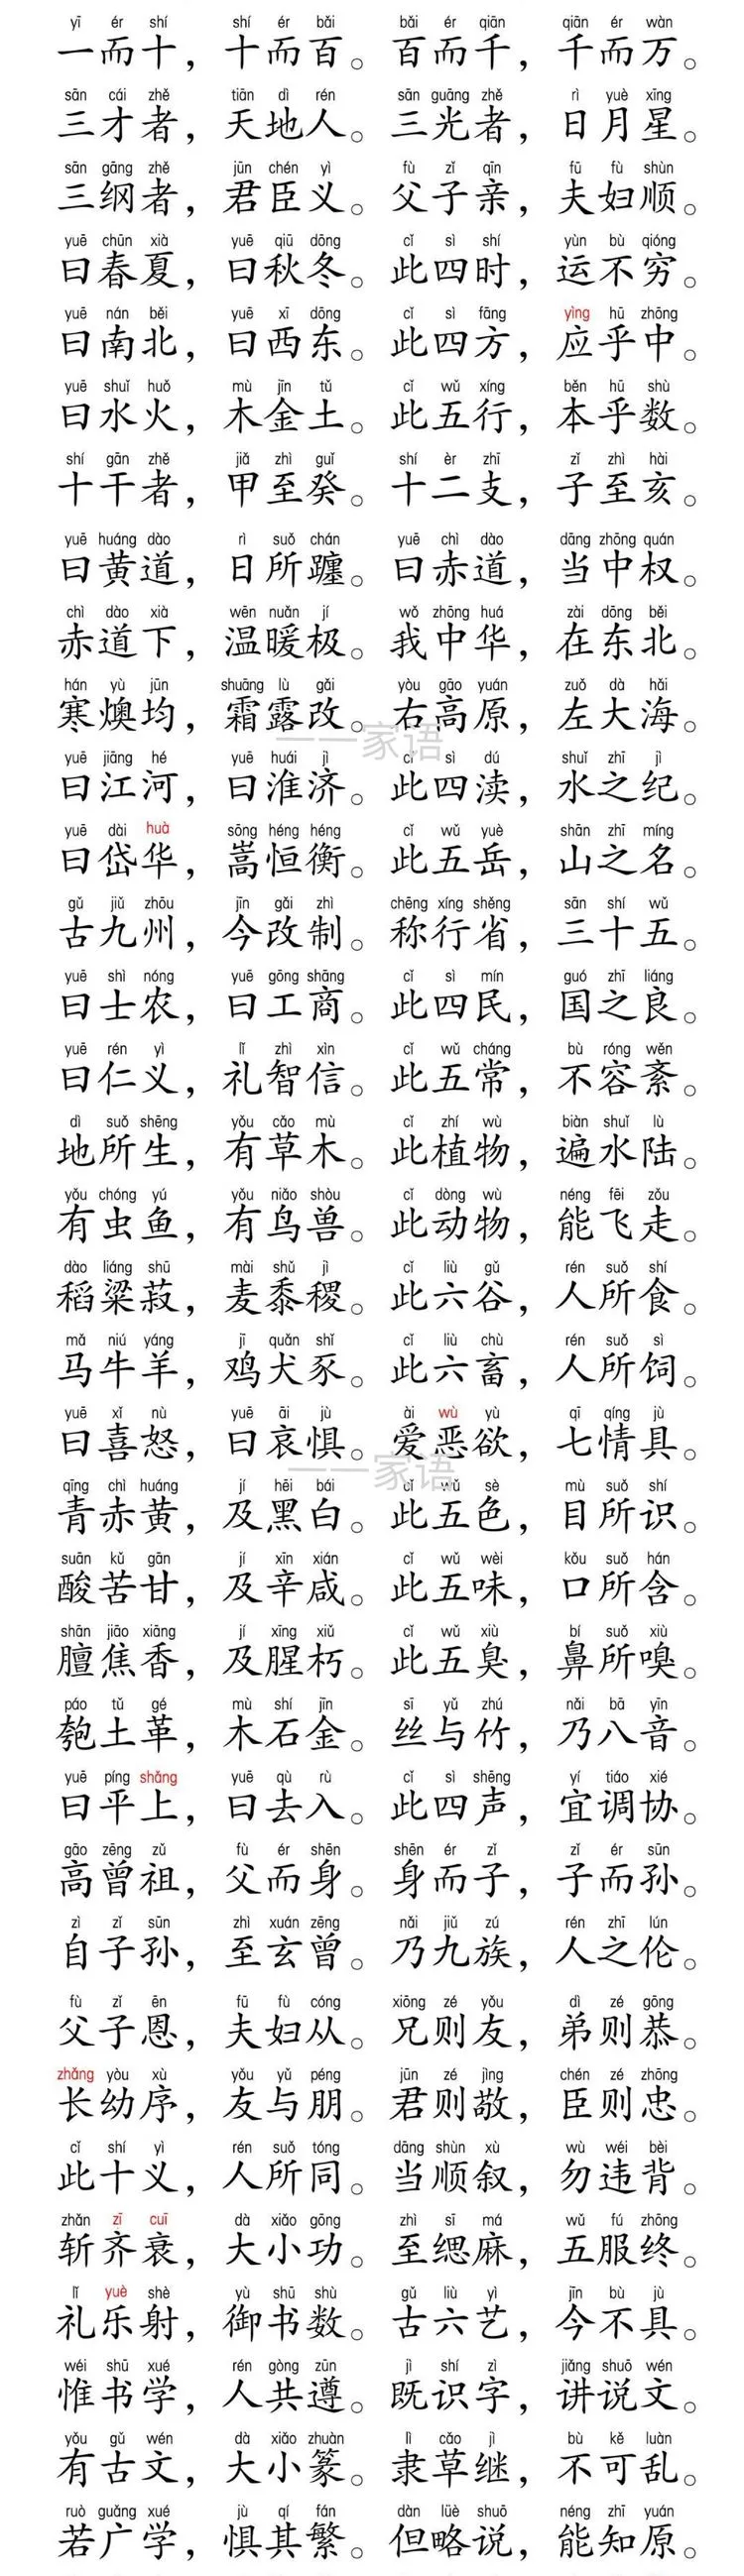 yī ér shí shí ér bǎi bǎi ér qiān qiān ér wàn
一而十，十而百。百而千，千而万。
sān cái zhě tiān dì rén sān guāng zhě rì yuè xīng
三才者，天地人。三光者，日月星。
sān gāng zhě jūn chén yì fù zǐ qīn fū fù shùn
三纲者，君臣义。父子亲，夫妇顺。
yuē chūn xià yuē qiū dōng cǐ sì shí yùn bù qióng
曰春夏，曰秋冬。此四时，运不穷。
yuē nán běi yuē xī dōng cǐ sì fāng yìng hū zhōng
曰南北，曰西东。此四方，应乎中。
yuē shuǐ huǒ mù jīn tǔ cǐ wǔ xíng běn hū shù
曰水火，木金土。此五行，本乎数。
shí gān zhě jiǎ zhì guǐ shí èr zhī zǐ zhì hài
十干者，甲至癸。十二支，子至亥。
yuē huáng dào rì suǒ chán yuē chì dào dāng zhōng quán
曰黄道，日所躔。曰赤道，当中权。
chì dào xià wēn nuǎn jí wǒ zhōng huá zài dōng běi
赤道下，温暖极。我中华，在东北。
hán yù jūn shuāng lù gǎi yòu gāo yuán zuǒ dà hǎi
寒燠均，霜露改。右高原，左大海。
一一家语
yuē jiāng hé yuē huái jì cǐ sì dú shuǐ zhī jì
曰江河，曰淮济。此四渎，水之纪。
yuē dài huà sōng héng héng cǐ wǔ yuè shān zhī míng
曰岱华，嵩恒衡。此五岳，山之名。
gǔ jiǔ zhōu jīn gǎi zhì chēng xíng shěng sān shí wǔ
古九州，今改制。称行省，三十五。
yuē shì nóng yuē gōng shāng cǐ sì mín guó zhī liáng
曰士农，曰工商。此四民，国之良。
yuē rén yì lǐ zhì xìn cǐ wǔ cháng bù róng wěn
曰仁义，礼智信。此五常，不容紊。
dì suǒ shēng yǒu cǎo mù cǐ zhí wù biàn shuǐ lù
地所生，有草木。此植物，遍水陆。
yǒu chóng yú yǒu niǎo shòu cǐ dòng wù néng fēi zǒu
有虫鱼，有鸟兽。此动物，能飞走。
dào liáng shū mài shǔ jì cǐ liù gǔ rén suǒ shí
稻粱菽，麦黍稷。此六谷，人所食。
mǎ niú yáng jī quǎn shǐ cǐ liù chù rén suǒ sì
马牛羊，鸡犬豕。此六畜，人所饲。
yuē xǐ nù yuē āi jù ài wù yù qī qíng jù
曰喜怒，曰哀惧。爱恶欲，七情具。
一一家语
qīng chì huáng jí hēi bái cǐ wǔ sè mù suǒ shí
青赤黄，及黑白。此五色，目所识。
suān kǔ gān jí xīn xián cǐ wǔ wèi kǒu suǒ hán
酸苦甘，及辛咸。此五味，口所含。
shān jiāo xiāng jí xīng xiǔ cǐ wǔ xiù bí suǒ xiù
膻焦香，及腥朽。此五臭，鼻所嗅。
páo tǔ gé mù shí jīn sī yǔ zhú nǎi bā yīn
匏土革，木石金。丝与竹，乃八音。
yuē píng shǎng yuē qù rù cǐ sì shēng yí tiáo xié
曰平上，曰去入。此四声，宜调协。
gāo zēng zǔ fù ér shēn shēn ér zǐ zǐ ér sūn
高曾祖，父而身。身而子，子而孙。
zì zǐ sūn zhì xuán zēng nǎi jiǔ zú rén zhī lún
自子孙，至玄曾。乃九族，人之伦。
fù zǐ ēn fū fù cóng xiōng zé yǒu dì zé gōng
父子恩，夫妇从。兄则友，弟则恭。
zhǎng yòu xù yǒu yǔ péng jūn zé jìng chén zé zhōng
长幼序，友与朋。君则敬，臣则忠。
cǐ shí yì rén suǒ tóng dāng shùn xù wù wéi bèi
此十义，人所同。当顺叙，勿违背。
zhǎn zī cuī dà xiǎo gōng zhì sī má wǔ fú zhōng
斩齐衰，大小功。至缌麻，五服终。
lǐ yuè shè yù shū shù gǔ liù yì jīn bù jù
礼乐射，御书数。古六艺，今不具。
wéi shū xué rén gòng zūn jì shí zì jiǎng shuō wén
惟书学，人共遵。既识字，讲说文。
yǒu gǔ wén dà xiǎo zhuàn lì cǎo jì bù kě luàn
有古文，大小篆。隶草继，不可乱。
ruò guǎng xué jù qí fán dàn lüè shuō néng zhī yuán
若广学，惧其繁。但略说，能知原。